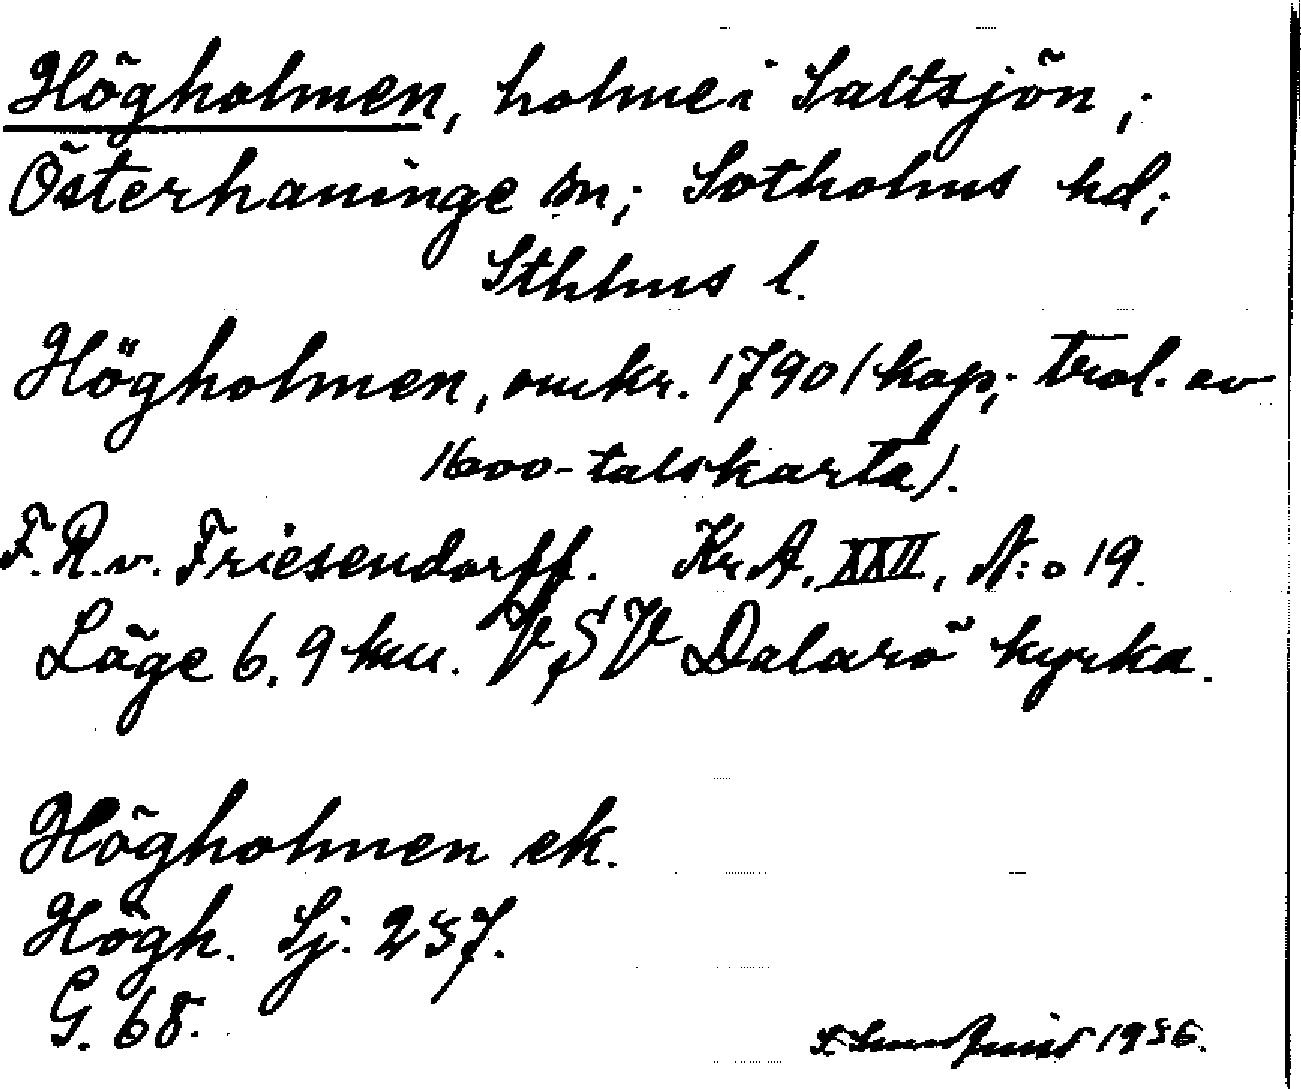 Högholmen, holme i Saltsjön,;
Österhaninge sn; Sotholms hd;
Sthlms l.
Högholmen, omkr. 1790 (kop; trol. av
1600-talskarta).
F. R. v. Friesendorff. Kr. A. XXII, N:o 19.
Läge 6,9 km. V, SV Dalarö kyrka.
Högholmen ek.
Högh. Sj. 257.
G. 68.
1936.